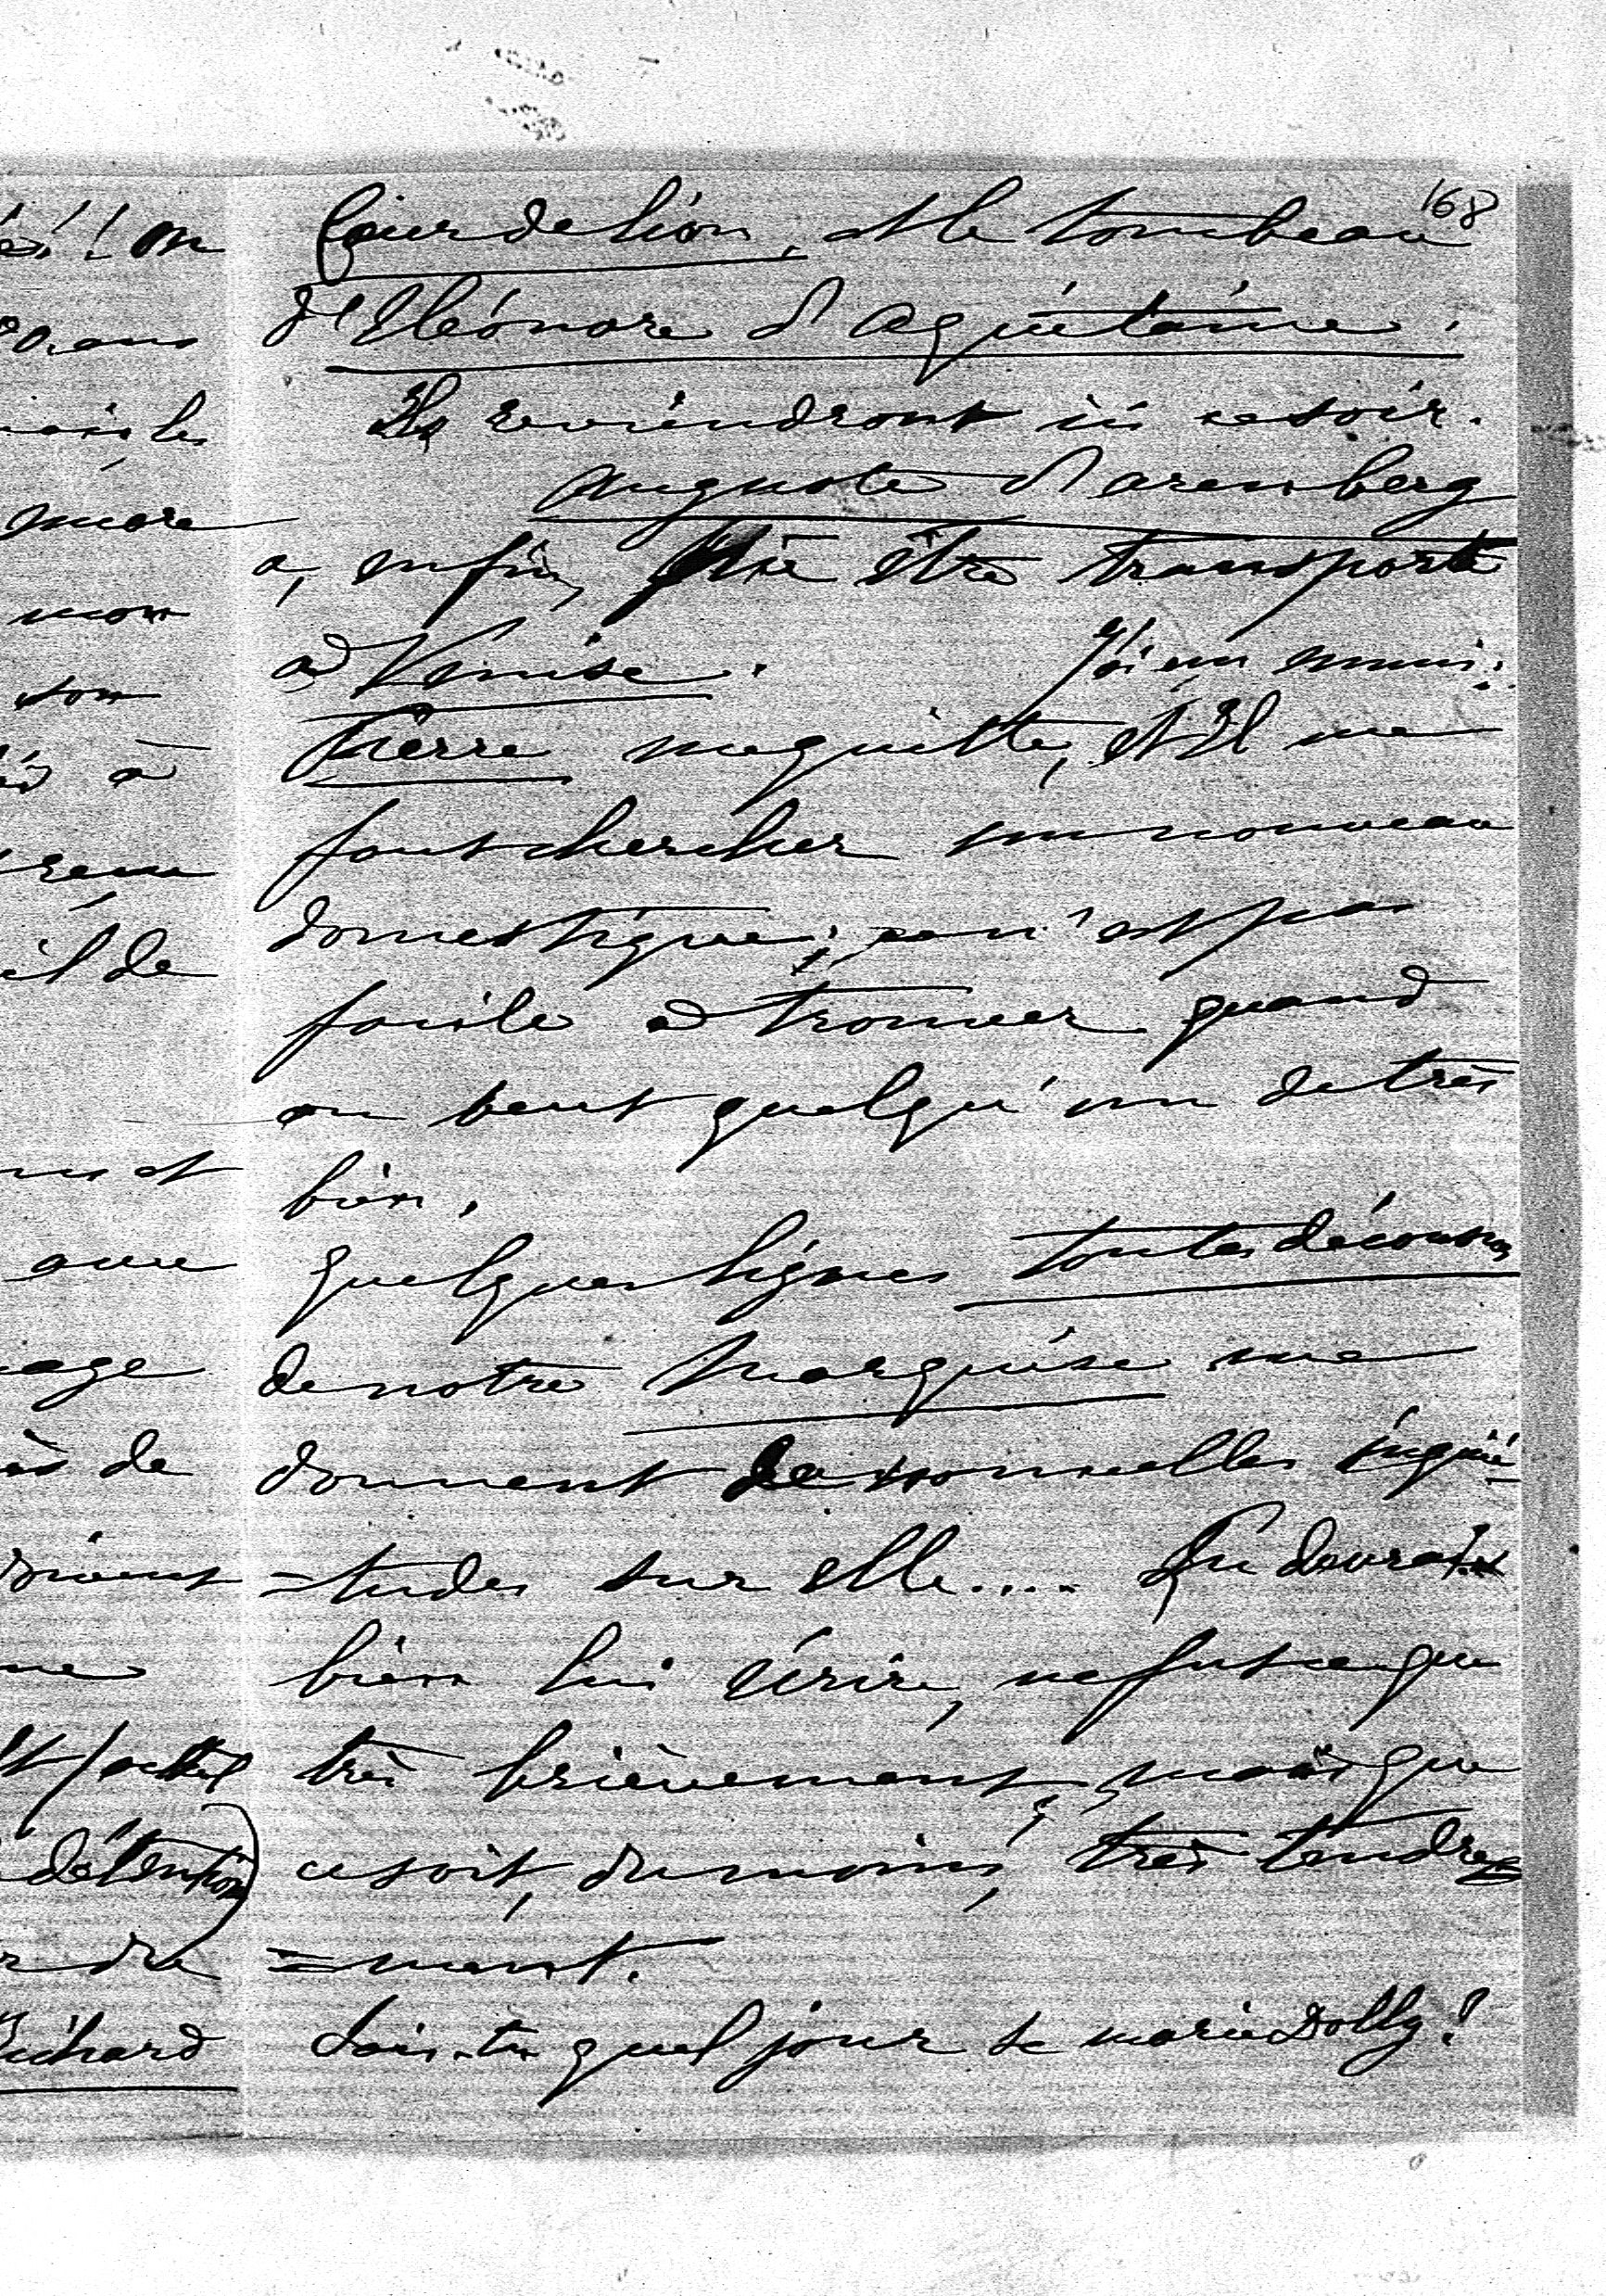 168
Cœur de Lion, et le tombeau
d'Eléonore d'Aquitaine.
Ils reviendront ici ce soir.
Auguste d'Arenberg
a, enfin, pu être transporté
à Venise. J'ai un ennui:
Pierre me quitte, et Il me
faut chercher un nouveau
domestique; ce n'est pas
facile à trouver quand
on veut quelqu'un de très
bien.
quelques lignes toutes décousues
de notre Marquise me
donnent de nouvelles inquié-
=tudes sur elle.... Tu devrais
bien lui écrire, ne fut-ce que
très brièvement, mais que
ce soit, du moins, très tendre
=ment.
Sais-tu quel jour se marie Dolly?
on
mon
son
à
il de
et
avec
de
détention)
Richard